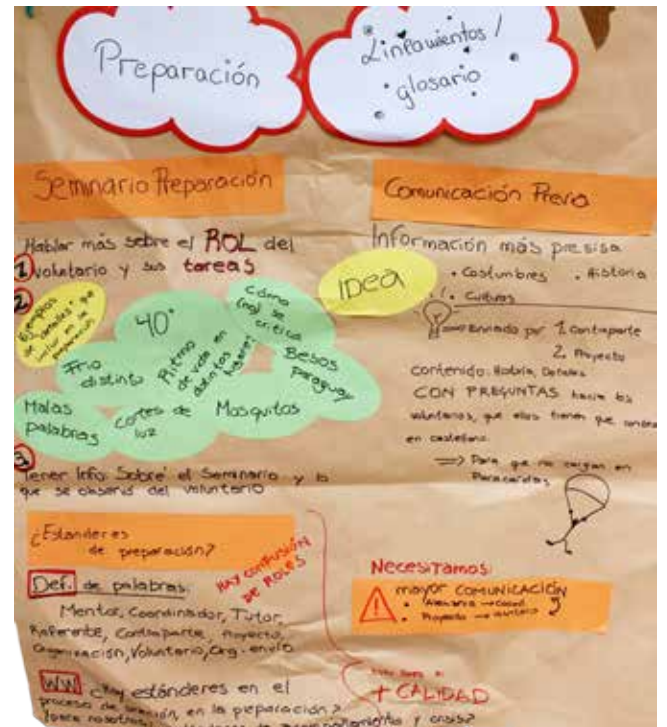 Preparación
Lineamientos /
glosario
Seminario Preparación
Hablar más sobre el ROL del
1 voluntario y sus tareas
2
Ejemplos
de "detalles" que
en la
preparación
40°
Cómo
(no) se
critica
Frio
distinto
Ritmo
de vida en
distintos
lugares
Besos
paraguay
Malas
palabras
cortes de
luz
Mosquitos
3
Tener Info. Sobre el Seminario y lo
que se observó del voluntario
¿Estanderes
de preparación?
HAY CONFUSIÓN
DE ROLES
Def. de palabras:
Mentor, Coordinador, Tutor,
Referente, Contraparte, Proyecto,
Organización, Voluntario, Org. envío
WW ¿Hay estánderes en el
proceso de selección, en la peparación?
Comunicación Previa
Información más presisa
IDEA
• Costumbres • Historia
• Cultura
Enviado por 1. Contraparte
2. Proyecto
contenido: Detalles
CON PREGUNTAS hacia los
voluntarios, que ellos tienen que
en castellano.
=> Para que no caigan en
Paracaídas
Necesitamos:
mayor COMUNICACIÓN
• Alemania →
• Proyecto → voluntario
+ CALIDAD
y crisis?